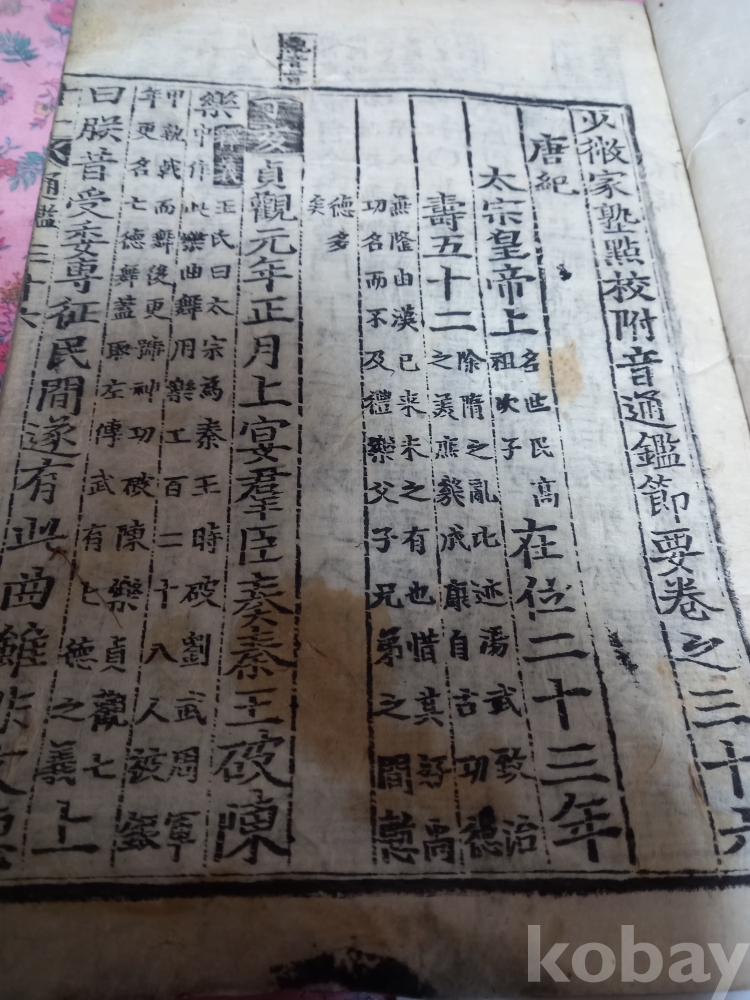 少微家塾點校附音通鑑節要卷之三十六
唐紀
太宗皇帝上名世民高祖次子在位二十三年
壽五十二除隋之亂比迹湯武致治之美庶幾成康自古功德
無隆由漢已來未之有也惜其好尚
功名而不及禮樂父子兄弟之間慙
德多
矣
丁亥貞觀元年正月上宴群臣奏秦王破陳
樂釋義王氏曰太宗爲秦王時破劉武周軍
中作此樂曲舞用樂工百二十八人被銀
甲執戟而舞後更號神功破陳樂貞觀七
年更名七德舞蓋取左傳武有七德之義上
曰朕昔受委專征民間遂有此曲雖非文
通鑑三十六
kobay